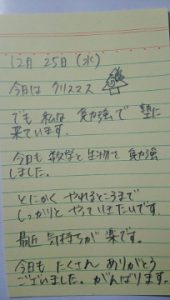 12月25日(水)
今日は クリスマス
でも 私は 勉強で 塾に
来ています。
今日も 数学と生物を 勉強
しました。
とにかく やれるところまで
しっかりと やっていきたいです。
最近 気持ちが 楽です。
今日も たくさん ありがとう
ございました。がんばります。